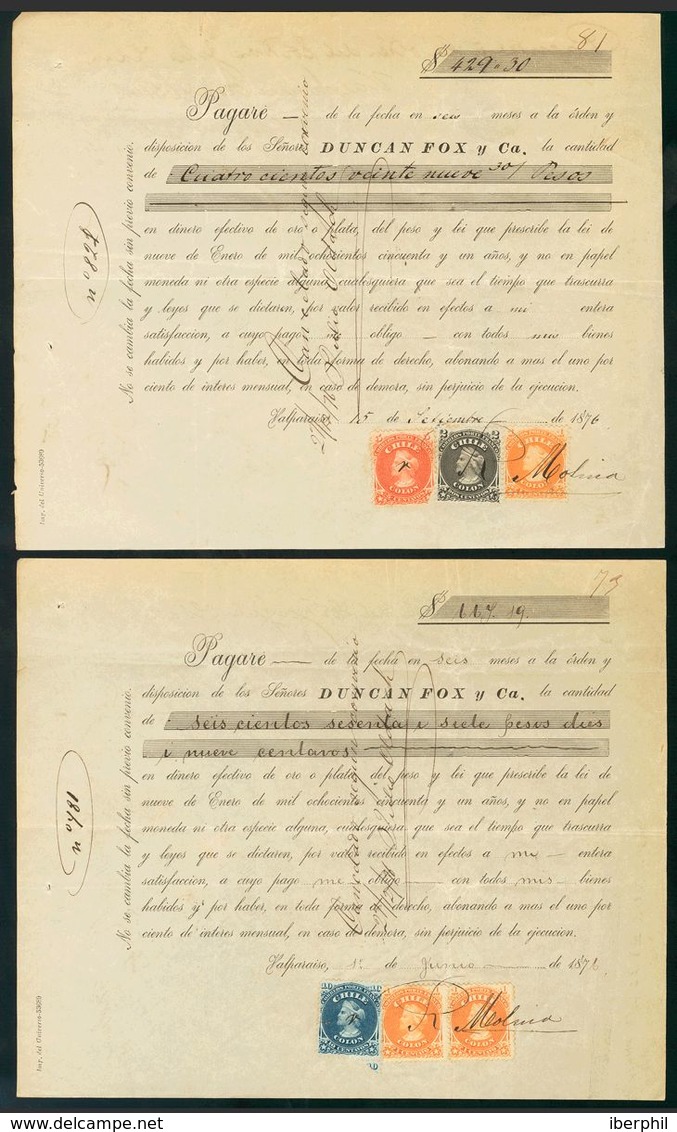 81
$ 429 " 30
Pagaré — de la fecha en seis meses a la órden y
disposicion de los Señores DUNCAN FOX y Ca. la cantidad
de Cuatro cientos veinte nueve 30/ Pesos
en dinero efectivo de oro o plata, del peso y lei que prescribe la lei de
nueve de Enero de mil ochocientos cincuenta y un años, y no en papel
moneda ni otra especie alguna, cualesquiera que sea el tiempo que trascurra
y leyes que se dictaren, por valor recibido en efectos a mi entera
satisfaccion, a cuyo pago me obligo — con todos mis bienes
habidos y por haber, en toda forma de derecho, abonando a mas el uno por
ciento de interes mensual, en caso de demora, sin perjuicio de la ejecucion.
Valparaiso, 15 de Setiembre de 1876
No se cambia la fecha sin previo convenio.
Cancelado segun convenio
Imp. del Universo-53699
CHILE
COLON
2 CHILE 2
COLON
CHILE
COLON
R Molina
$ 667. 19.
Pagaré — de la fecha en seis meses a la órden y
disposicion de los Señores DUNCAN FOX y Ca. la cantidad
de seis cientos sesenta i siete pesos dies
i nueve centavos
en dinero efectivo de oro o plata, del peso y lei que prescribe la lei de
nueve de Enero de mil ochocientos cincuenta y un años, y no en papel
moneda ni otra especie alguna, cualesquiera que sea el tiempo que trascurra
y leyes que se dictaren, por valor recibido en efectos a me — entera
satisfaccion, a cuyo pago me obligo — con todos mis — bienes
habidos y por haber, en toda forma de derecho, abonando a mas el uno por
ciento de interes mensual, en caso de demora, sin perjuicio de la ejecucion.
Valparaiso, de Junio de 1876
No se cambia la fecha sin previo convenio.
Cancelado segun convenio
Imp. del Universo-53699
10 CHILE 10
COLON
10 CENTAVOS
CHILE
COLON
CHILE
COLON
R Molina
iberphil